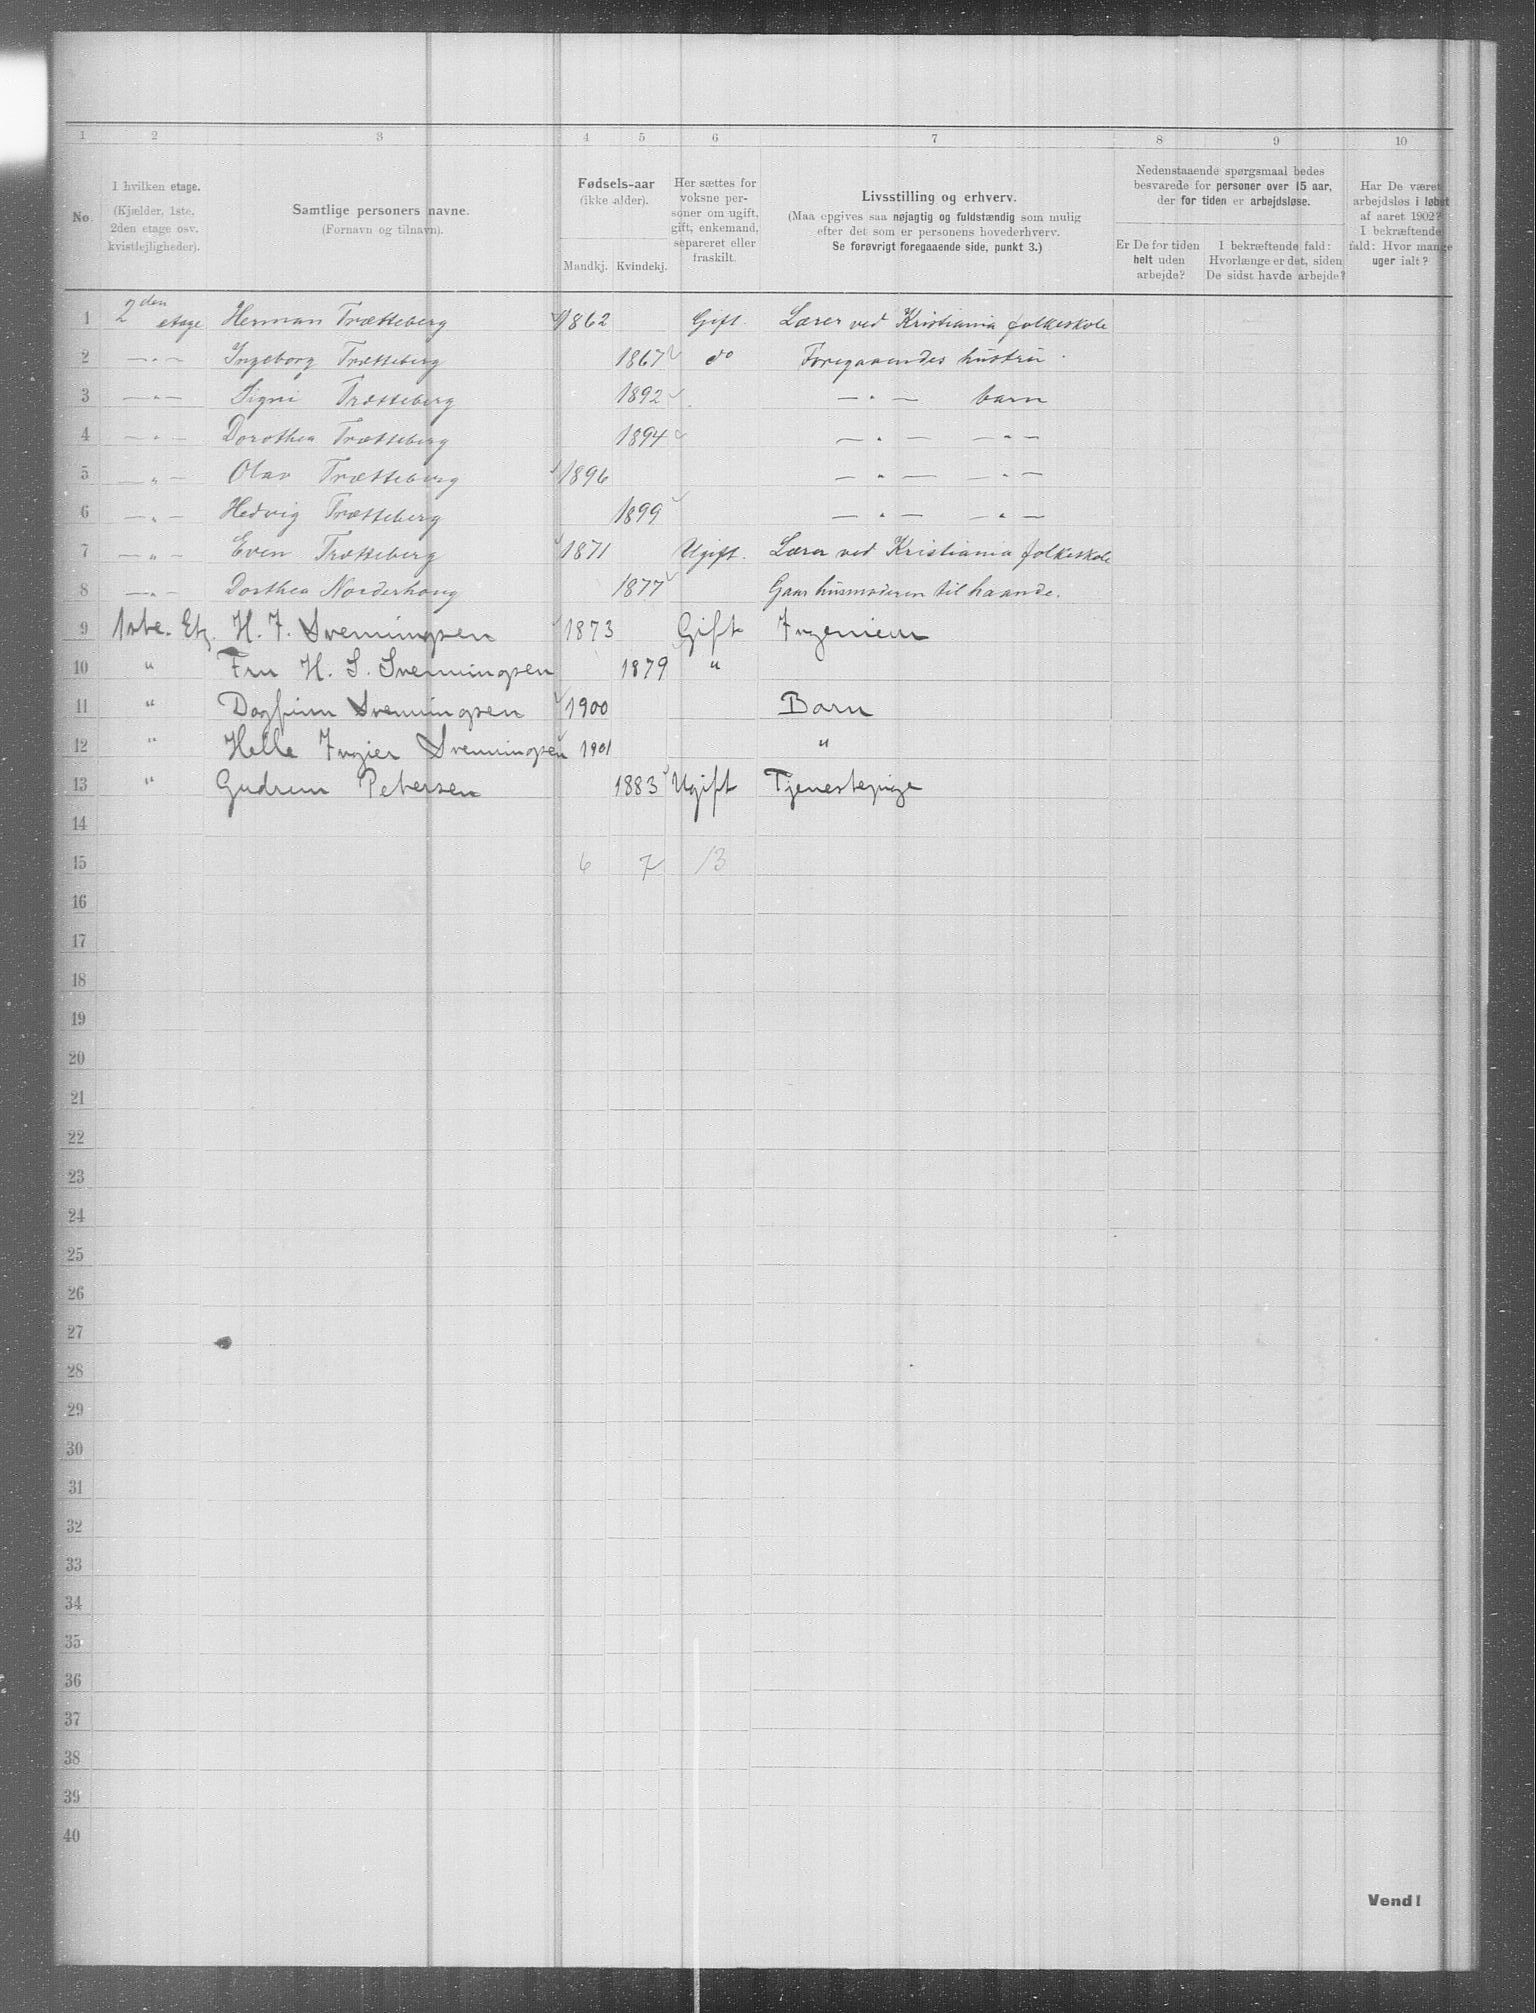 1 2 3 4 5 6 7 8 9 10
No. I hvilken etage. (Kjælder, 1ste, 2den etage osv. kvistlejligheder). Samtlige personers navne. (Fornavn og tilnavn). Fødsels-aar (ikke alder). Mandkj. Kvindekj. Her sættes for voksne personer om ugift, gift, enkemand, separeret eller fraskilt. Livsstilling og erhverv. (Maa opgives saa nøjagtig og fuldstændig som mulig efter det som er personens hovederhverv. Se forøvrigt foregaaende side, punkt 3.) Nedenstaaende spørgsmaal bedes besvarede for personer over 15 aar, der for tiden er arbejdsløse. Er De for tiden helt uden arbejde? I bekræftende fald: Hvorlænge er det, siden De sidst havde arbejde? Har De været arbejdsløs i løbet af aaret 1902? I bekræftende fald: Hvor mange uger ialt?
1 2den etage Herman Trætteberg 1862 Gift. Lærer ved Kristiania folkeskole
2 — " — Ingeborg Trætteberg 1867 do Foregaaendes hustru
3 — " — Signi Trætteberg 1892 — " — barn
4 — " — Dorothea Trætteberg 1894 — " — — " —
5 — " — Olav Trætteberg 1896 — " — — " —
6 — " — Hedvig Trætteberg 1899 — " — — " —
7 — " — Even Trætteberg 1871 Ugift. Lærer ved Kristiania folkeskole
8 — " — Dorthea Norderhaug 1877 Gaar husmoderen til haande.
9 1ste. Etg. H. F. Svenningsen 1873 Gift Ingeniør
10 " Fru H. S. Svenningsen 1879 "
11 " Dagfinn Svenningsen 1900 Barn
12 " Helle Ingier Svenningsen 1901 "
13 " Gudrun Petersen 1883 Ugift Tjenestepige
14
15 6 7 13
16
17
18
19
20
21
22
23
24
25
26
27
28
29
30
31
32
33
34
35
36
37
38
39
40
Vend!